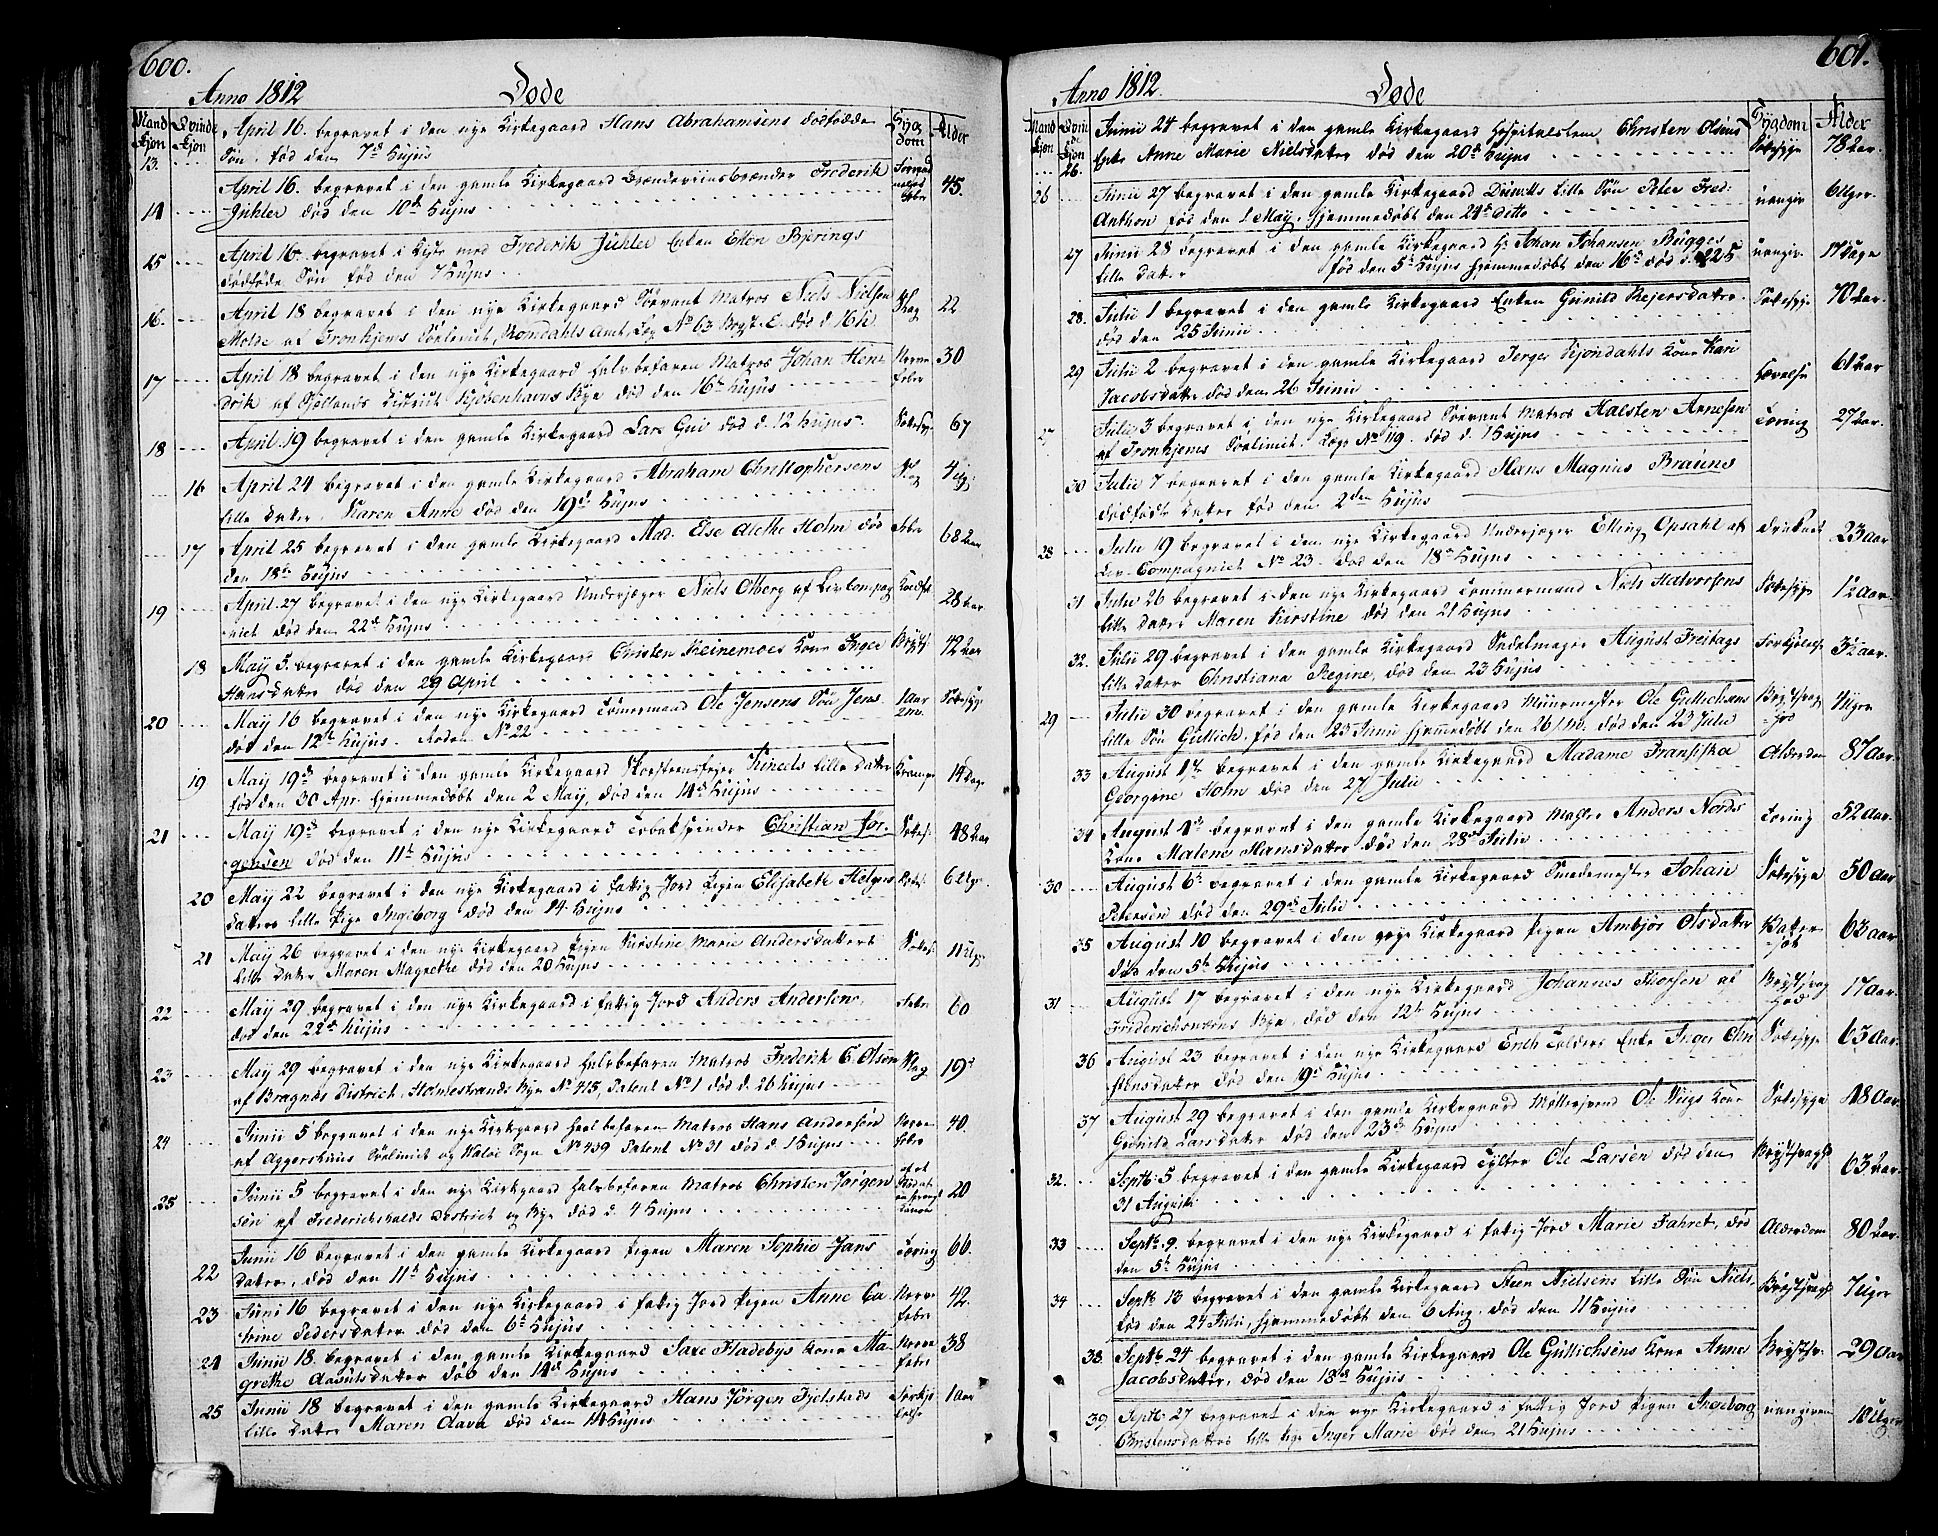 600.
Anno 1812 Døde
Mand Kjøn Qvinde Kjøn Sygdom Alder
13. April 16. begravet i den nye Kirkegaard Hans Abrahamsens dødfødde
Søn, fød den 7de hujus
14 April 16. begravet i den gamle Kirkegaard Brændeviinsbrænder Frederik 45.
Jühler død den 10de hujus
15 April 16. begravet i Kiste med Frederik Jühler Enken Ellen Bjerings
dødføde Søn fød den 7 hujus
16. April 18 begravet i den nye Kirkegaard Søevant Matros Niels Nielsen 22
Molde af Tronhjems Sølimit, Romdahls Amt, Læg No 63 død d. 16 h.
17 April 18 begravet i den nye Kirkegaard halvbefaren Matros Johan Hen= Nerve 30
drik af Sjellands District Kjøbenhavns Bye død den 16de hujus feber
18 April 19 begravet i den gamle Kirkegaard Lars Gui død d. 12 hujus 67
16 April 24 begravet i den gamle Kirkegaard Abraham Christophersens
lille Datter, Karen Anne død den 19de hujus
17 April 25 begravet i den gamle Kirkegaard Mad. Else Alethe Holm død Feber 68 Aar
den 18de hujus
19 April 27 begravet i den nye Kirkegaard Underjæger Niels Olberg af Liv Compag 28 Aar
niet død den 22de hujus
18 May 5. begravet i den gamle Kirkegaard Christen Reinemoes Kone Inger 42 Aar
Hansdatter død den 29 April
20 May 16 begravet i den nye Kirkegaard Tømermand Ole Jensens Søn Jens 1 Aar
død den 12te hujus. Roden No 22
19 May 19de begravet i den gamle Kirkegaard Skorsteensfejer Kineels lille Datter Krampe 14 Dage
fød den 30 Apr. hjemmedøbt den 2 May, død den 14de hujus
21 May 19de begravet i den nye Kirkegaard Tobakspinder Christian Jør= 48 Aar
gensen død den 11te hujus
20 May 22 begravet i den nye Kirkegaard i fattig Jord Pigen Elisabeth Helges 6 Uger
datters lille Pige Ingeborg død den 14 hujus
21 May 26 begravet i den nye Kirkegaard Pigen Kirstine Marie Andersdatters 11 Uger
lille Datter Maren Magrethe død den 20 hujus
22 May 29 begravet i den nye Kirkegaard i fattig Jord Anders Andersen Feber 60
død den 22de hujus
23 May 29 begravet i den nye Kirkegaard halvbefaren Matros Frederik C. Olsen 19
af Bragnæs District, Holmestrands Bye No 415, Patent No 1 død d. 26 hujus
24 Junii 5 begravet i den nye Kirkegaard heelbefaren Matros Hans Andersen Nerve 40
af Aggershuus Sølimit og Valøe Sogn No 439 Patent No 31 død d. 1 hujus feber
25 Junii 5 begravet i den nye Kirkegaard halvbefaren Matros Christen Jørgen 20
sen af Frederichshalds District og Bye død d. 4 hujus
22 Junii 16 begravet i den gamle Kirkegaard Pigen Maren Sophie Jans Tæring 66
datter, død den 11te hujus
23 Juni 16 begravet i den nye Kirkegaard i fattig Jord Pigen Anne Ca Nerve 42.
thrine Pedersdatter død den 6te hujus feber
24 Junii 18. begravet i den gamle Kirkegaard Saxe Fladebys Kone Ma= Nerve 38
grethe Aavutsdatter død den 14de hujus feber
25 Junii 18 begravet i den gamle Kirkegaard Hans Jørgen Fjelstads Forkjø 1 Aar
lille Datter Maren Aava død den 14 hujus lelse
601.
Anno 1812. Døde
Mand Kjøn Qvinde Kjøn Sygdom Alder
26. Junii 24 begravet i den gamle Kirkegaard Hospitalslem Christen Olsens
Enke Anne Marie Nielsdatter død den 20de hujus Sotesyge 78 Aar.
26 Junii 27 begravet i den gamle Kirkegaard lille Søn Peter Fred. uangiv 6 Uger
Anthon fød den 1 May, hjemmedøbt den 24de ditto
27 Junii 28 begravet i den gamle Kirkegaard Hr Johan Johansen Bugges uangiv. 17 Dage
lille Datter fød den 5te hujus hjemmedøbt den 16de død d. 22
28. Julii 1 begravet i den gamle Kirkegaard Enken Gunild Rejersdatter Sotesyge 70 Aar
død den 25 Junii
29 Julii 2 begravet i den gamle Kirkegaard Jerges Sjøndahls Kone Kari Hævelse 61 Aar
Jacobsdatter død den 26 Junii
27 Julii 3 begravet i den nye Kirkegaard Søevant Matros Halsten Arnesen Tæring 27 Aar.
af Tronhjems Sølimit. Læg No 119. død d. 1 hujus
30 Julii 7 begravet i den gamle Kirkegaard Hans Magnus Brauns
dødfødt Datter fød den 2den hujus
28 Julii 19 begravet i den nye Kirkegaard Underjæger Elling Opsahl af druknet 23 Aar
Liv-Compagniet No 23. død den 18de hujus
31 Julii 26 begravet i den nye Kirkegaard Tømmermand Niels Halvorsens Sotesyge 12 Aar.
lille Datter Maren Kirstine død den 21 hujus
32. Julii 29 begravet i den gamle Kirkegaard Sadelmager August Freitags Forkjølelse 3½ Aar.
lille Datter Christiana Regine, død den 23 hujus
29 Julii 30 begravet i den gamle Kirkegaard Muurmester Ole Gullichsens 4 Uger
lille Søn Gullich, fød den 25 Junii hjemmedøbt den 26 død den 23 Julii
33 August 1te begravet i den gamle Kirkegaard Madame Fransiska Alderdom 87 Aar.
Georgine Holm død den 27 Julii
34 August 4de begravet i den gamle Kirkegaard Anders Nords Tæring 52 Aar.
Kone Malene Hansdatter død den 28de Julii
30 August 6te begravet i den gamle Kirkegaard Smedemester Johan Sotesyge 50 Aar
Petersen død den 29de Julii
35 August 10 begravet i den nye Kirkegaard Pigen Ambjør Olsdatter 63 Aar
død den 5te hujus
31 August 17 begravet i den nye Kirkegaard Johannes Thorsen af 17 Aar.
Friderichsværns Bye, død den 12te hujus
36 August 23 begravet i den nye Kirkegaard Erich Enke Inger Chri Sotesyge 63 Aar
stensdatter død den 19de hujus
37 August 29 begravet i den gamle Kirkegaard Møllersvend Ole Kone Sotesyge 48 Aar
Gunild Larsdatter død den 23de hujus
32. Septbr. 5 begravet i den gamle Kirkegaard Ole Larsen død den Brystsvaghed 63 Aar.
31 August
33 Septbr. 9. begravet i den nye Kirkegaard i fattig Jord Marie Fahret, død Alderdom 80 Aar.
den 5te hujus
34 Septbr 13 begravet i den gamle Kirkegaard Steen Nielsens lille Søn Niels, Brystsvagh 7 Uger
fød den 24 Julii, hjemmedøbt den 6 Aug. død den 11 hujus
38. Septbr. 24 begravet i den gamle Kirkegaard Ole Gullichsens Kone Anne Brystsv. 29 Aar
Jacobsdatter, død den 18de hujus
39 Septbr. 27 begravet i den nye Kirkegaard i fattig Jord Pigen Ingeborg uangiven 18 Uger
Christensdatters lille Pige Inger Marie død den 21 hujus